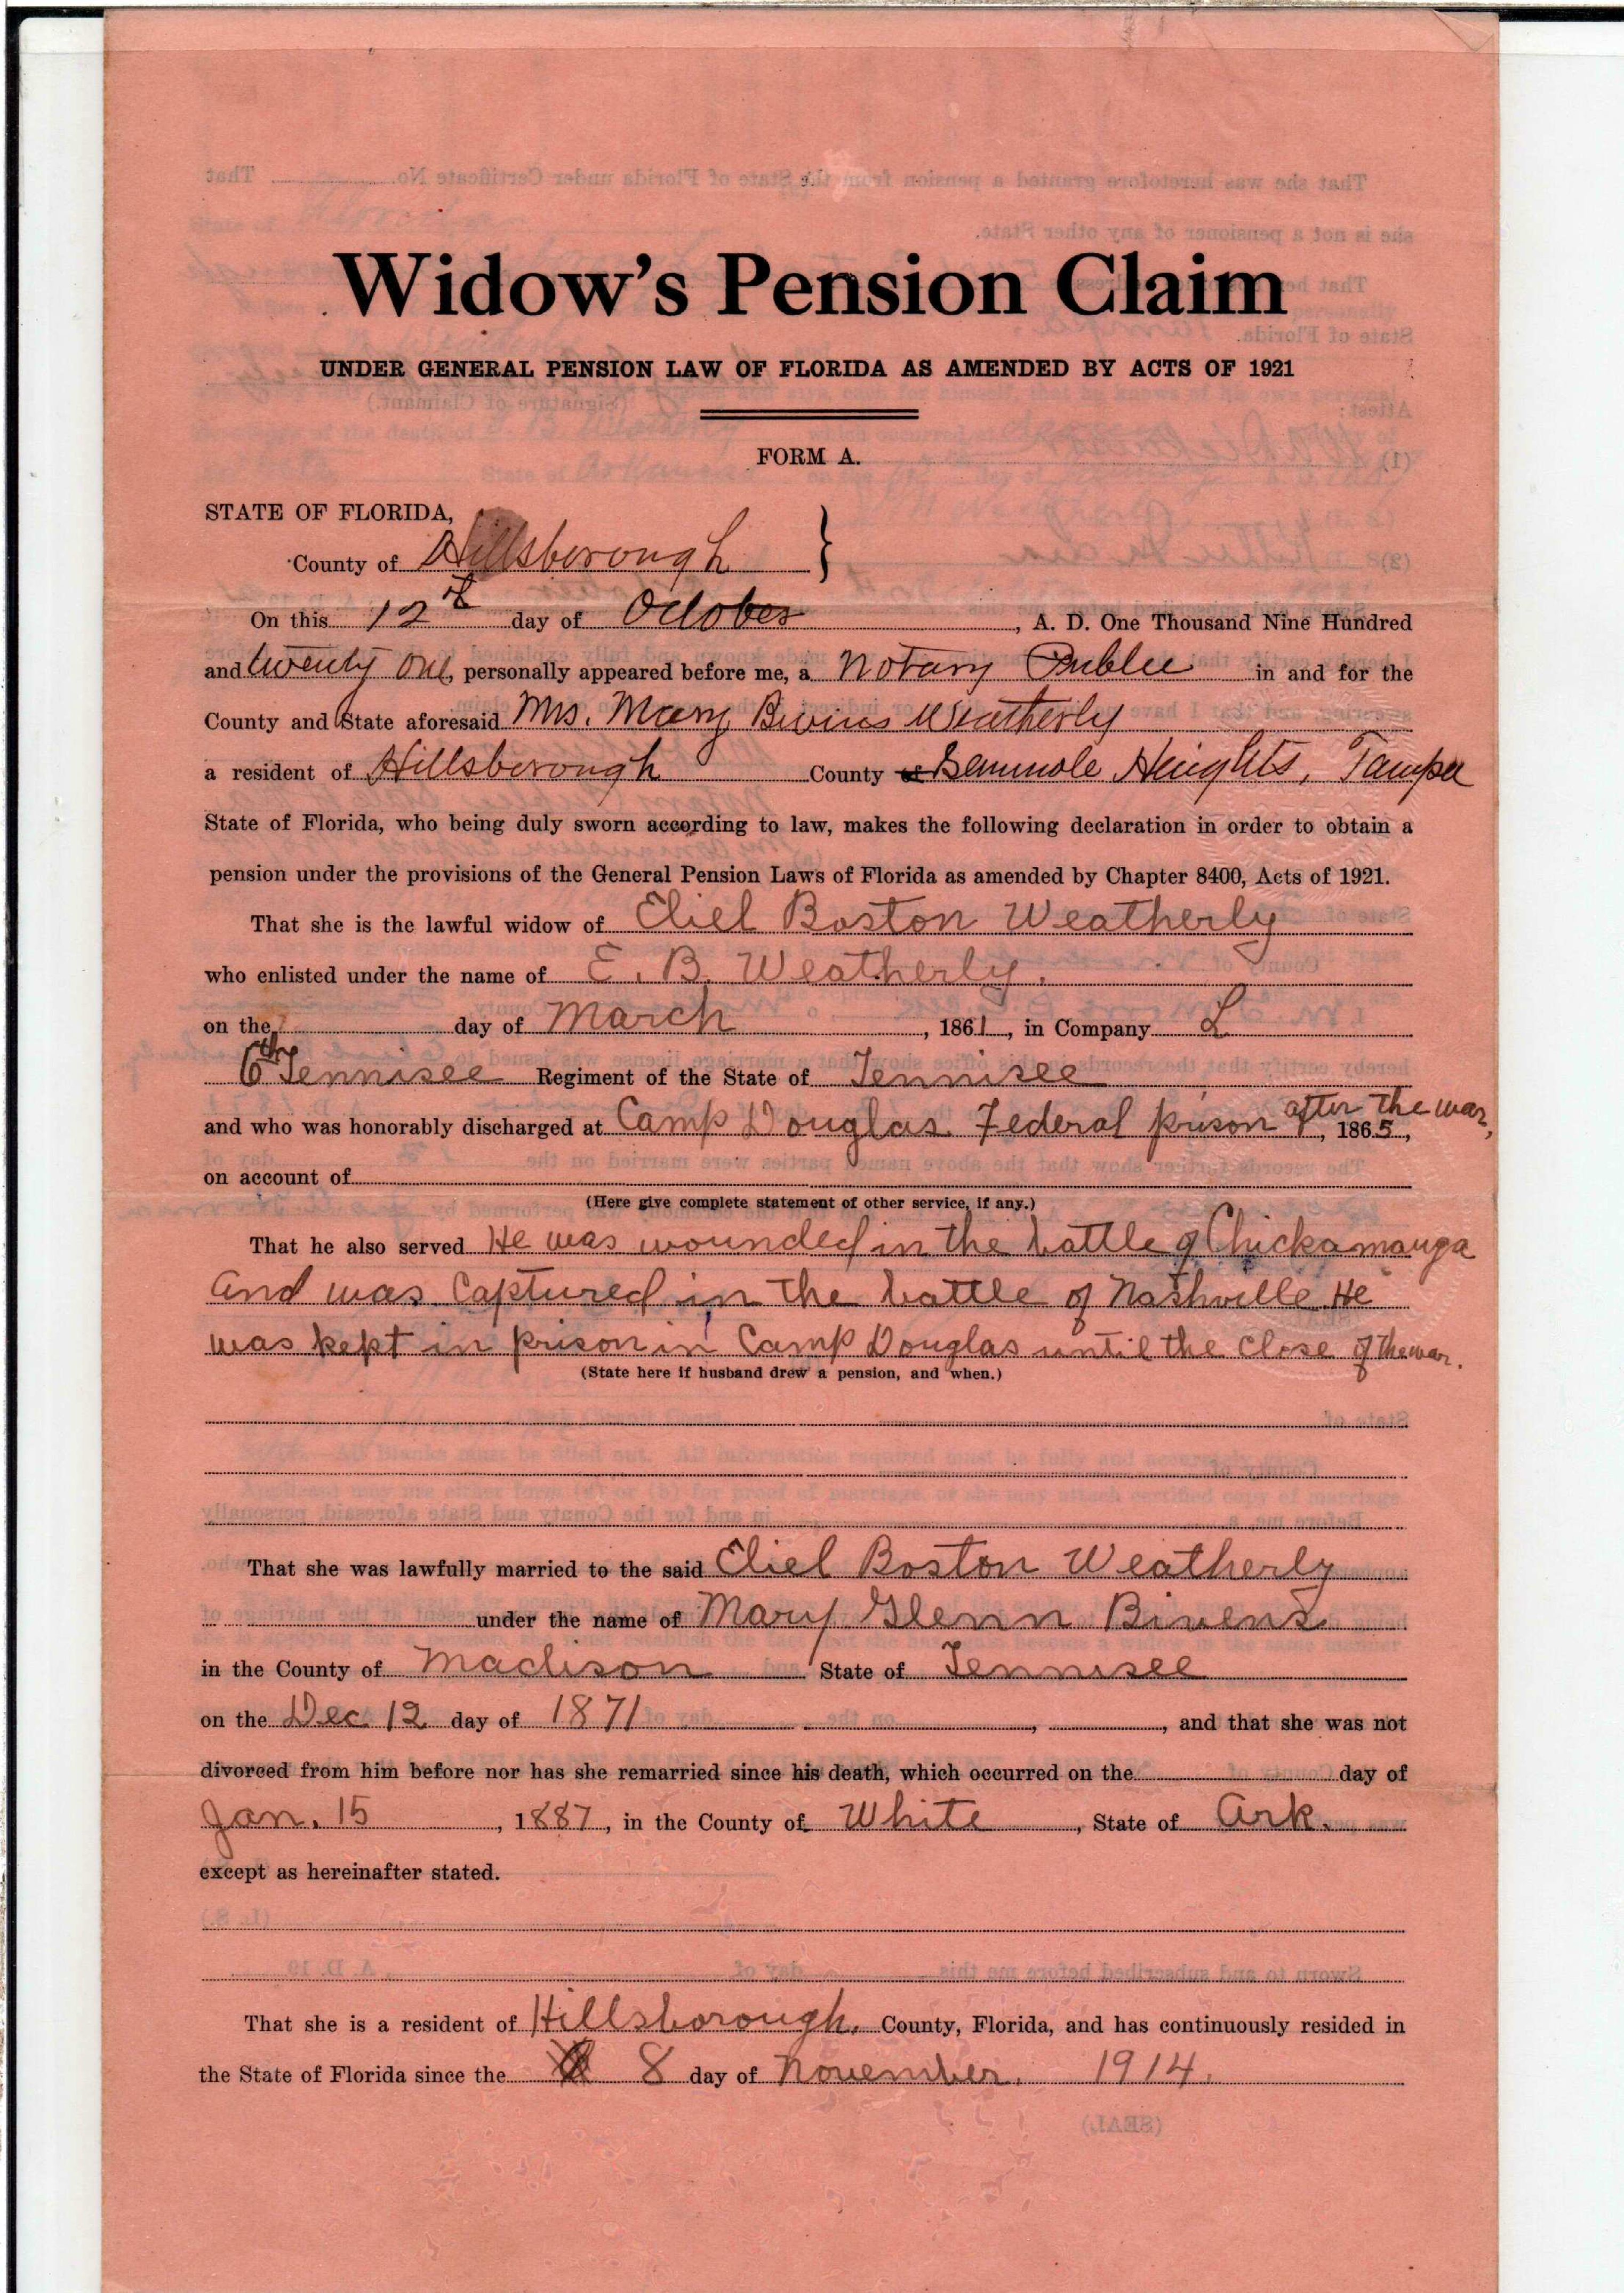 Widow's Pension Claim
UNDER GENERAL PENSION LAW OF FLORIDA AS AMENDED BY ACTS OF 1921
FORM A.
STATE OF FLORIDA,
County of Hillsborough }
On this 12th day of October, A. D. One Thousand Nine Hundred
and twenty one personally appeared before me, a Notary Public in and for the
County and State aforesaid Mrs. Mary Bivins Weatherly
a resident of Hillsborough County Seminole Heights, Tampa
State of Florida, who being duly sworn according to law, makes the following declaration in order to obtain a
pension under the provisions of the General Pension Laws of Florida as amended by Chapter 8400, Acts of 1921.
That she is the lawful widow of Eliel Boston Weatherly
who enlisted under the name of E. B. Weatherly.
on the day of March, 1861, in Company L
6th Tennisee Regiment of the State of Tennisee
and who was honorably discharged at Camp Douglas Federal prison after the war, 1865,
on account of
(Here give complete statement of other service, if any.)
That he also served He was wounded in the battle of Chickamauga
and was captured in the battle of Nashville He
was kept in prison in Camp Douglas until the close of the war.
(State here if husband drew a pension, and when.)
That she was lawfully married to the said Eliel Boston Weatherly
under the name of Mary Glenn Bivens
in the County of Madison State of Tennisee
on the Dec 12 day of 1871, , and that she was not
divorced from him before nor has she remarried since his death, which occurred on the day of
Jan. 15, 1887, in the County of White, State of Ark.
except as hereinafter stated.
That she is a resident of Hillsborough. County, Florida, and has continuously resided in
the State of Florida since the 8 day of November. 1914.